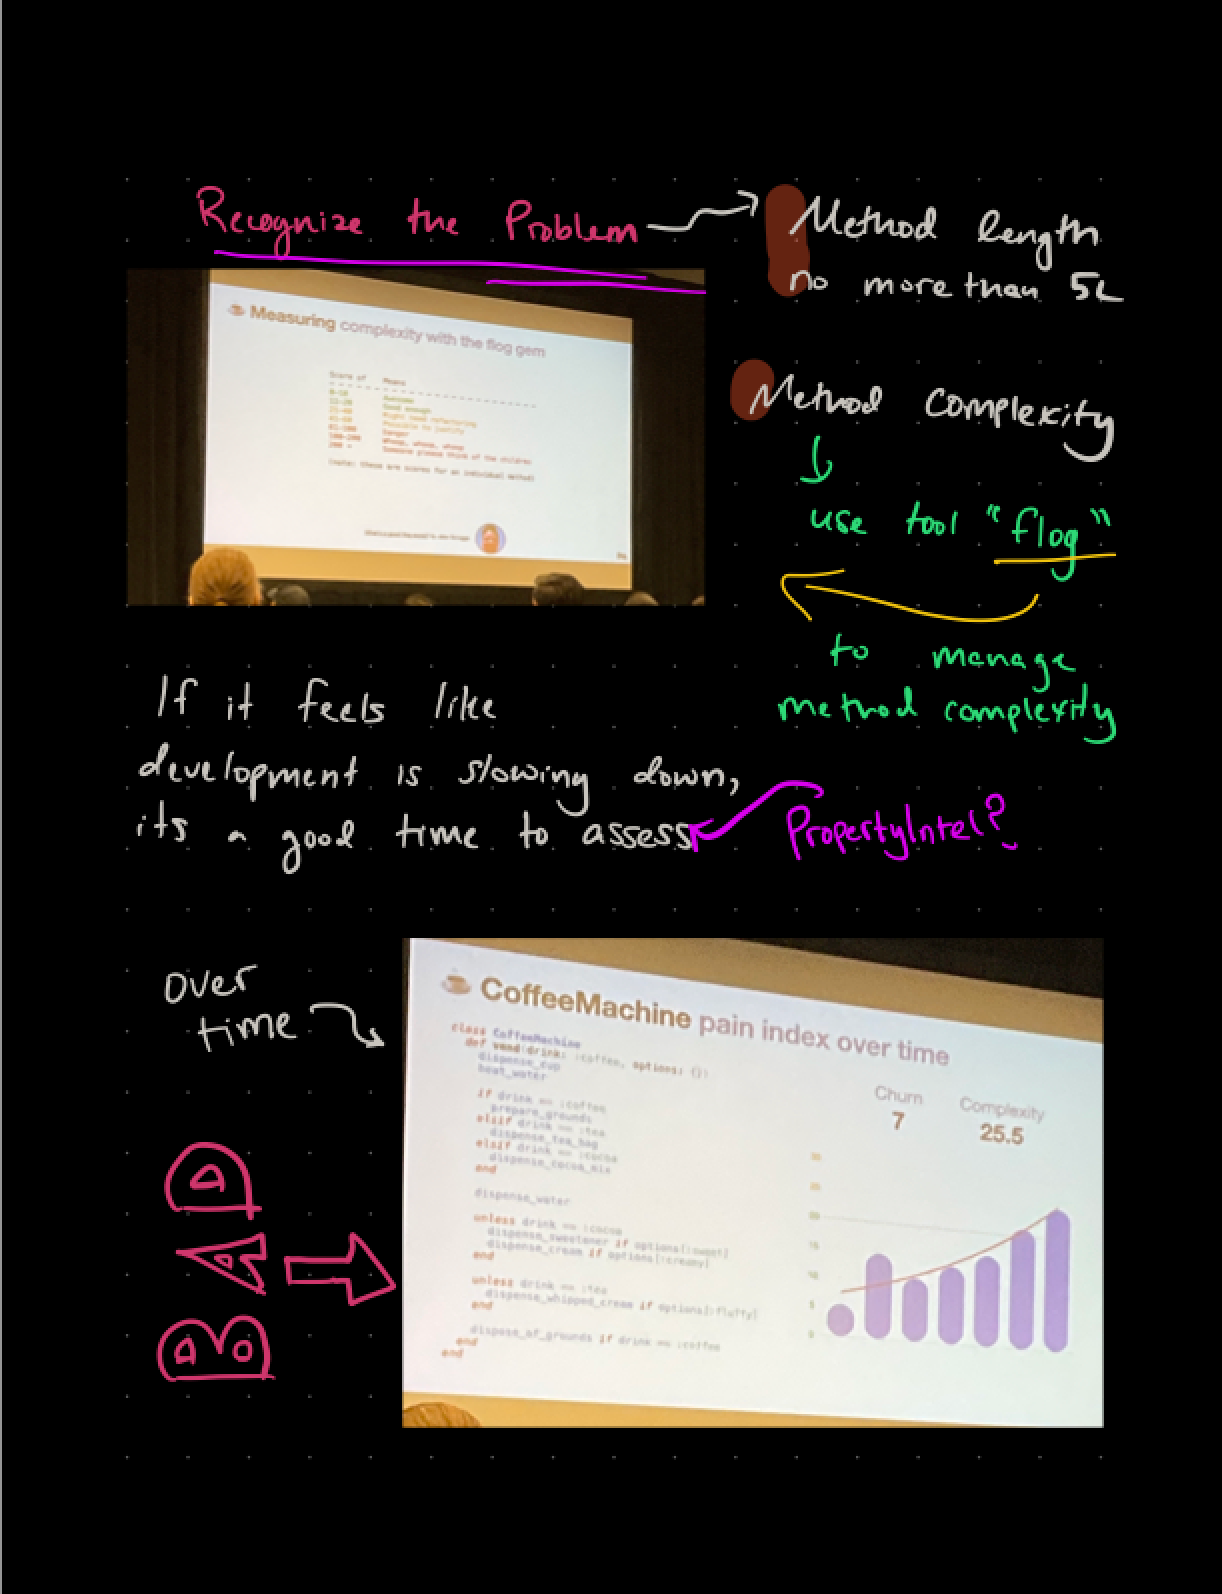 Recognize the Problem
Method length
no more than 5L
Measuring complexity with the flog gem
Score of Means
0-10 Awesome
11-20 Good enough
21-40 Might need refactoring
41-60 Possible to justify
61-100 Danger
100-200 Whoop, whoop, whoop
200 + Someone please think of the children
(note: these are scores for an individual method)
Method complexity
use tool "flog"
to manage
method complexity
If it feels like
development is slowing down,
its a good time to assess
PropertyIntel?
over
time
BAD
CoffeeMachine pain index over time
class CoffeeMachine
def vend(drink: :coffee, options: {})
dispense_cup
heat_water
if drink == :coffee
prepare_grounds
elsif drink == :tea
dispense_tea_bag
elsif drink == :cocoa
dispense_cocoa_mix
end
dispense_water
unless drink == :cocoa
dispense_sweetener if options[:sweet]
dispense_cream if options[:creamy]
end
unless drink == :tea
dispense_whipped_cream if options[:fluffy]
end
dispose_of_grounds if drink == :coffee
end
end
Churn
7
Complexity
25.5
30
25
20
15
10
5
0